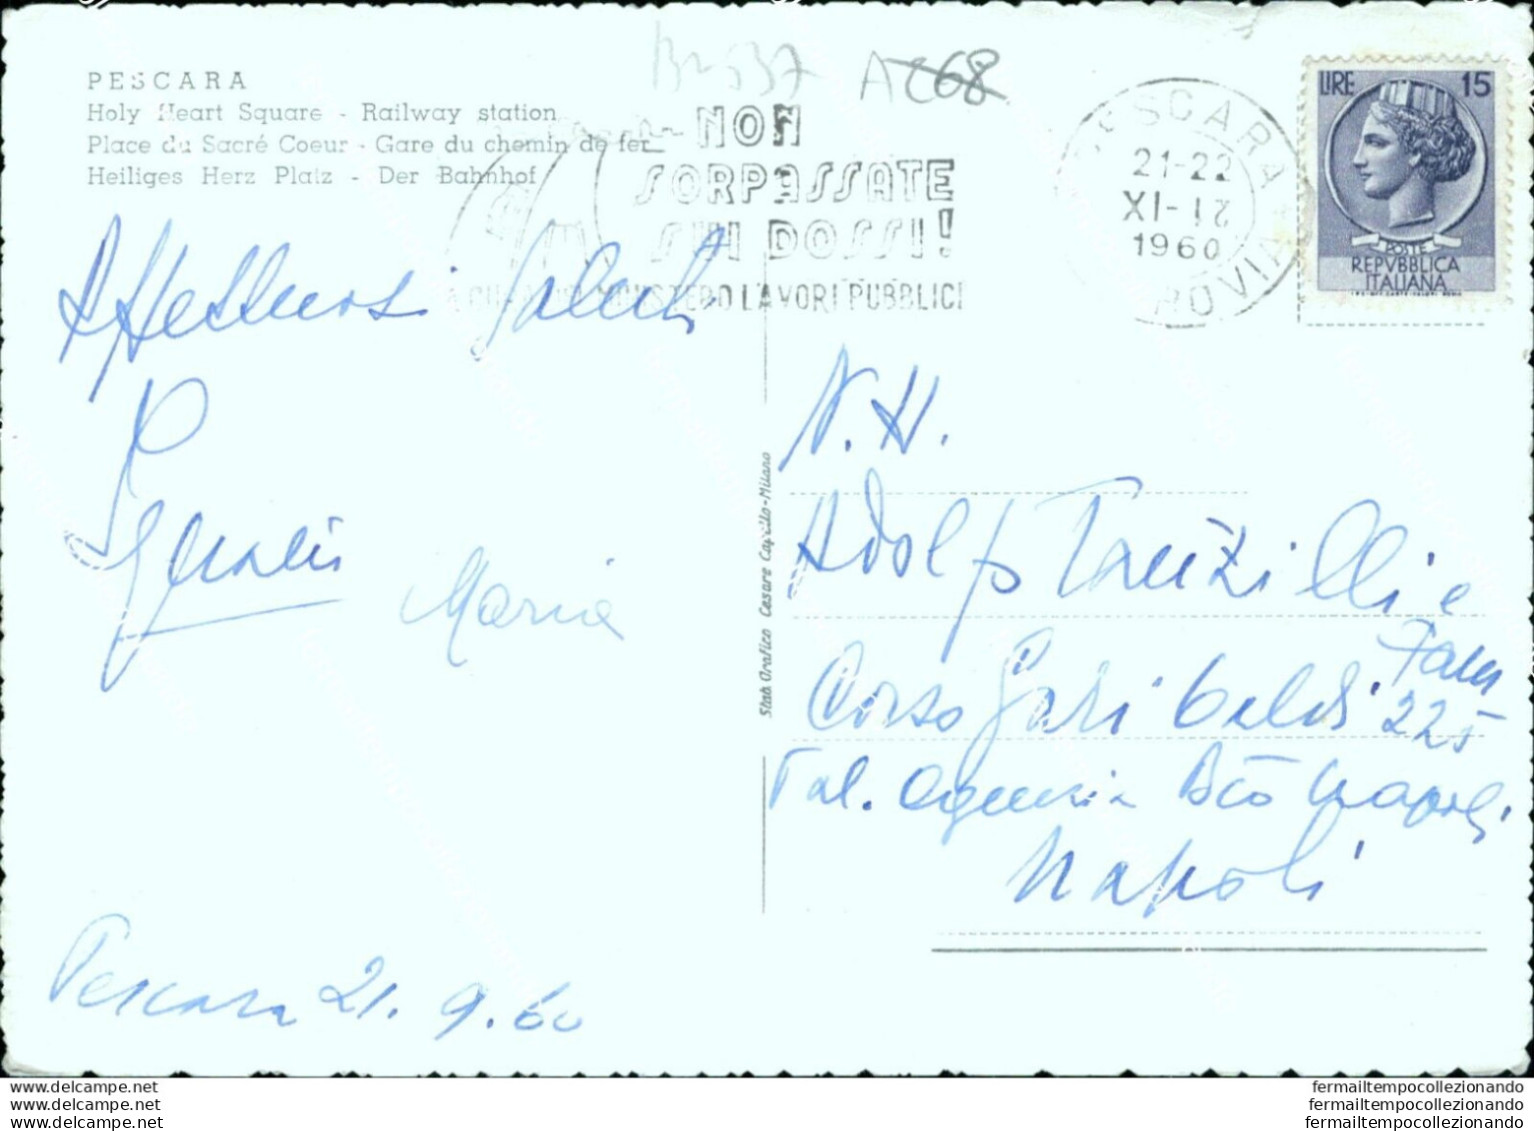 PESCARA
Holy Heart Square - Railway station
Place du Sacré Coeur - Gare du chemin de fer
Heiliges Herz Platz - Der Bahnhof
AC68
NON
SORPASSATE
SUI DOSSI!
A CURA DEL MINISTERO LAVORI PUBBLICI
PESCARA
21-22
1960
ROVIA
LIRE 15
POSTE
REPVBBLICA
ITALIANA
Affettuosi Saluti
Maria
Pescara 21.9.60
Stab. Grafico Cesare Capello-Milano
N.H.
Adolfo Tanzilli e
Fam
Corso Garibaldi 225
Agenzia Bco Napoli
Napoli
www.delcampe.net
www.delcampe.net
www.delcampe.net
fermailtempocollezionando
fermailtempocollezionando
fermailtempocollezionando